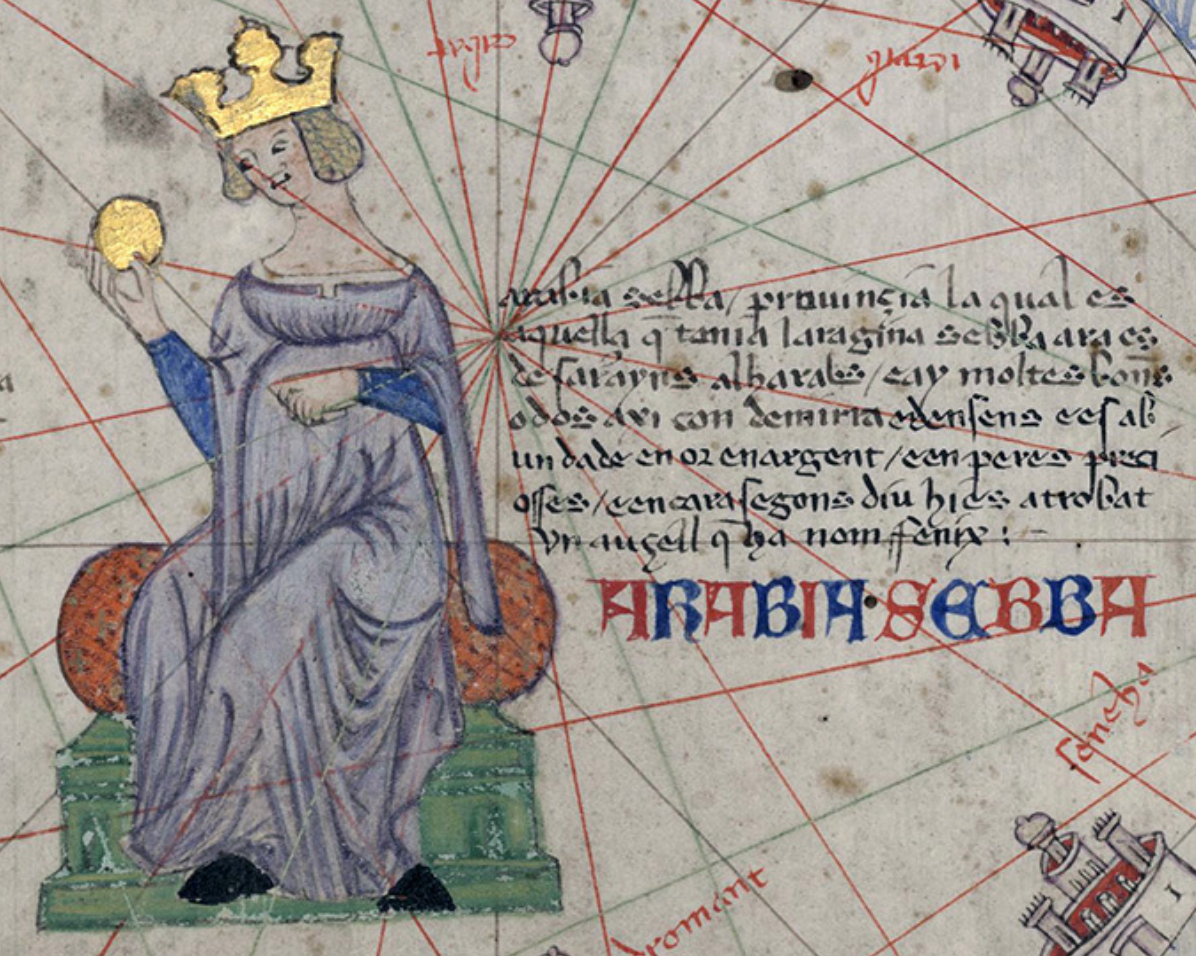 arabia sebba / prouinçia la qual es
aquella q̄ tania la ragina sebba ara es
de sarayns alharabs / e ay moltes bones
odos axi con de mirra e densens e es ab
undade en or en argent / e en peres preci
osses / e en cara segons diu hi es atrobat
vn aucell q̄ ha nom ffenix :
ARABIA SEBBA